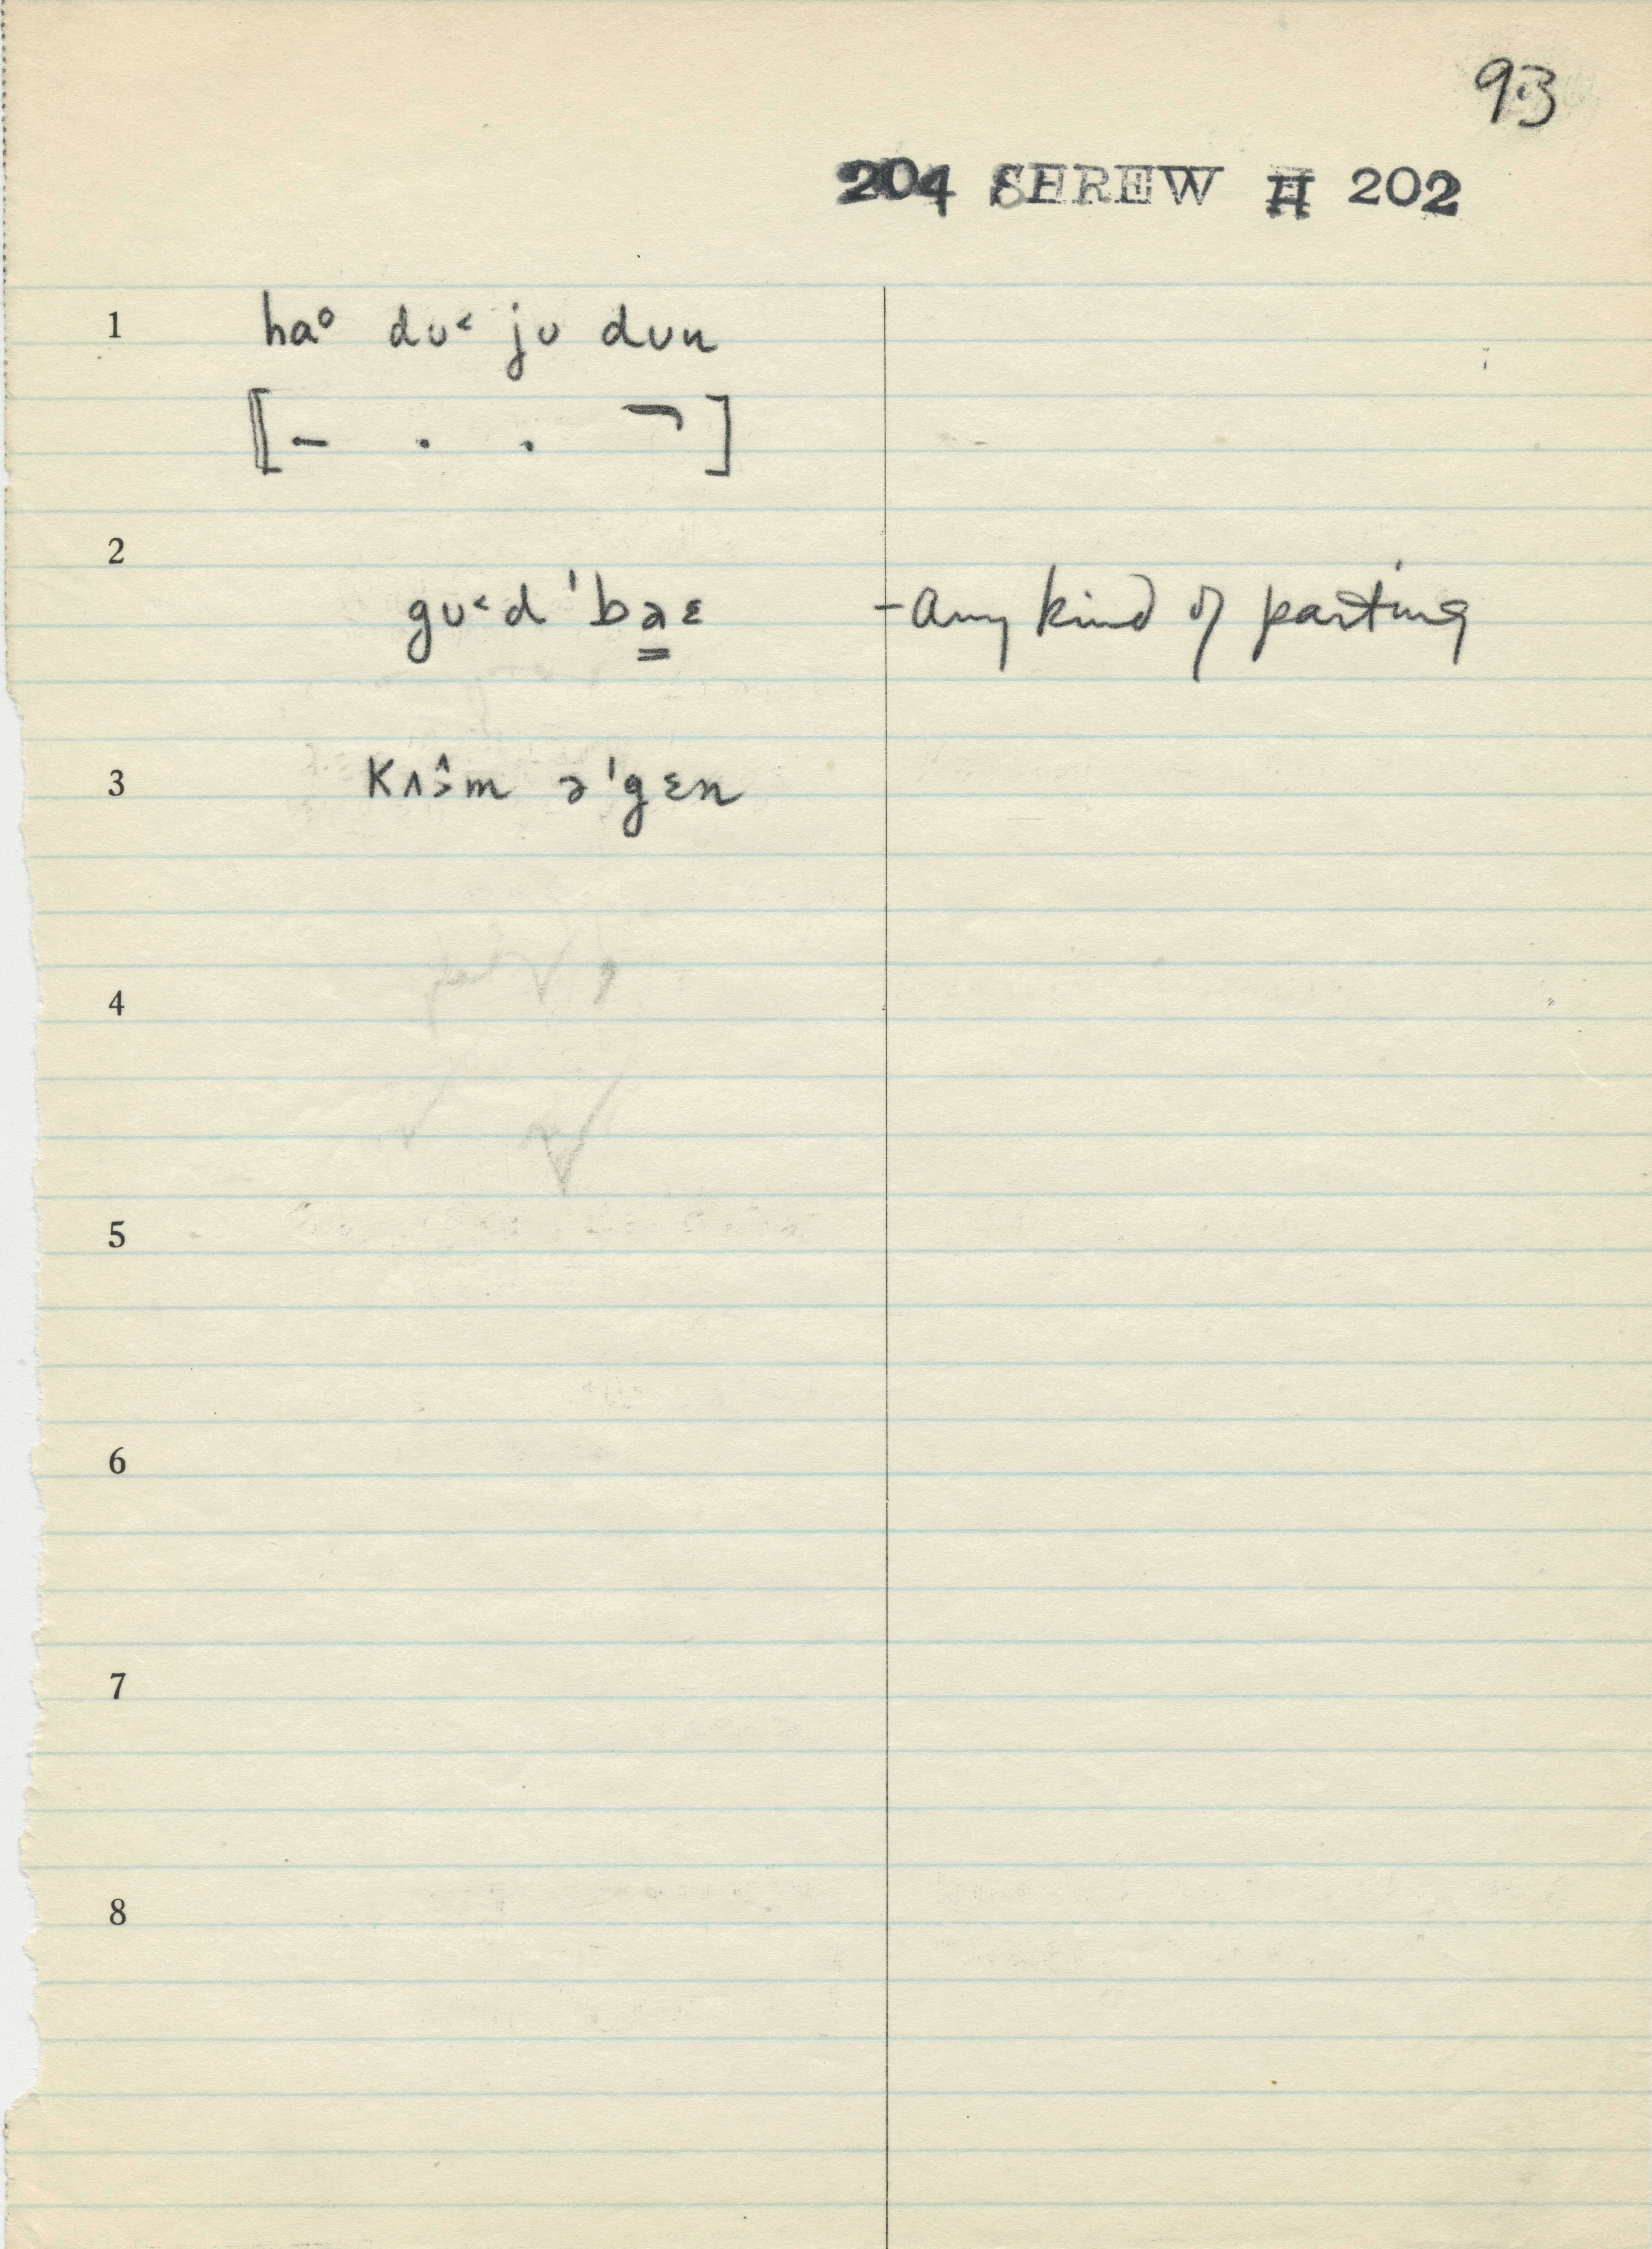 93
204 SHREW H 202
1 haᵒ dʊ˂ jʊ dʊn
[– . . ¬]
2
gʊ˂d ˈba̳ɛ - any kind of parting
3 kʌɔ̂m əˈgɛn
4
5
6
7
8